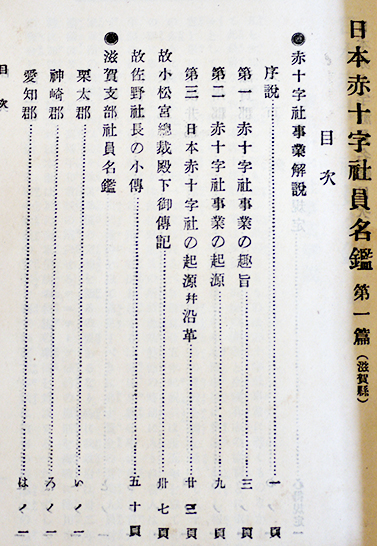 日本赤十字社員名鑑 第一篇(滋賀縣)
目次
●赤十字社事業解説
序説……一頁
第一 赤十字社事業の趣旨……三頁
第二 赤十字社事業の起源……九頁
第三 日本赤十字社の起源并沿革……廿三頁
故小松宮總裁殿下御傳記……卅七頁
故佐野社長の小傳……五十頁
●滋賀支部社員名鑑
栗太郡……いノ一
神崎郡……ろノ一
愛知郡……はノ一
目次